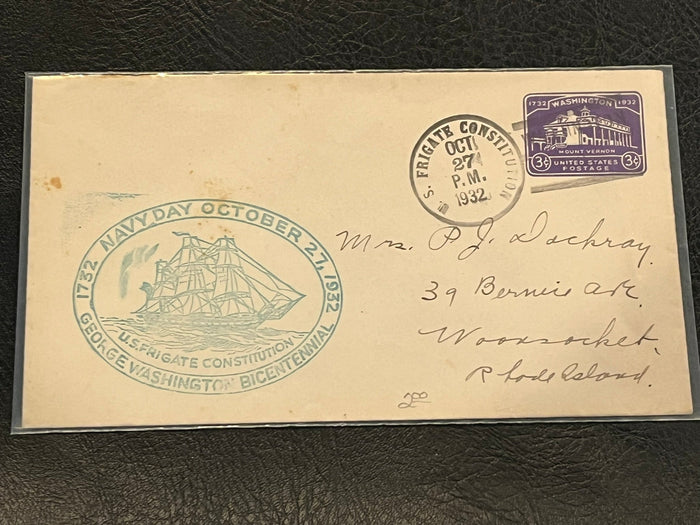 1732 WASHINGTON 1932
MOUNT VERNON
3¢ UNITED STATES 3¢
POSTAGE
U.S. FRIGATE CONSTITUTION
OCT
27
P.M.
1932
1732 NAVY DAY OCTOBER 27, 1932
U.S. FRIGATE CONSTITUTION
GEORGE WASHINGTON BICENTENNIAL
Mrs. P. J. Dockray.
39 Bernice Ave.
Woonsocket,
Rhode Island.
200